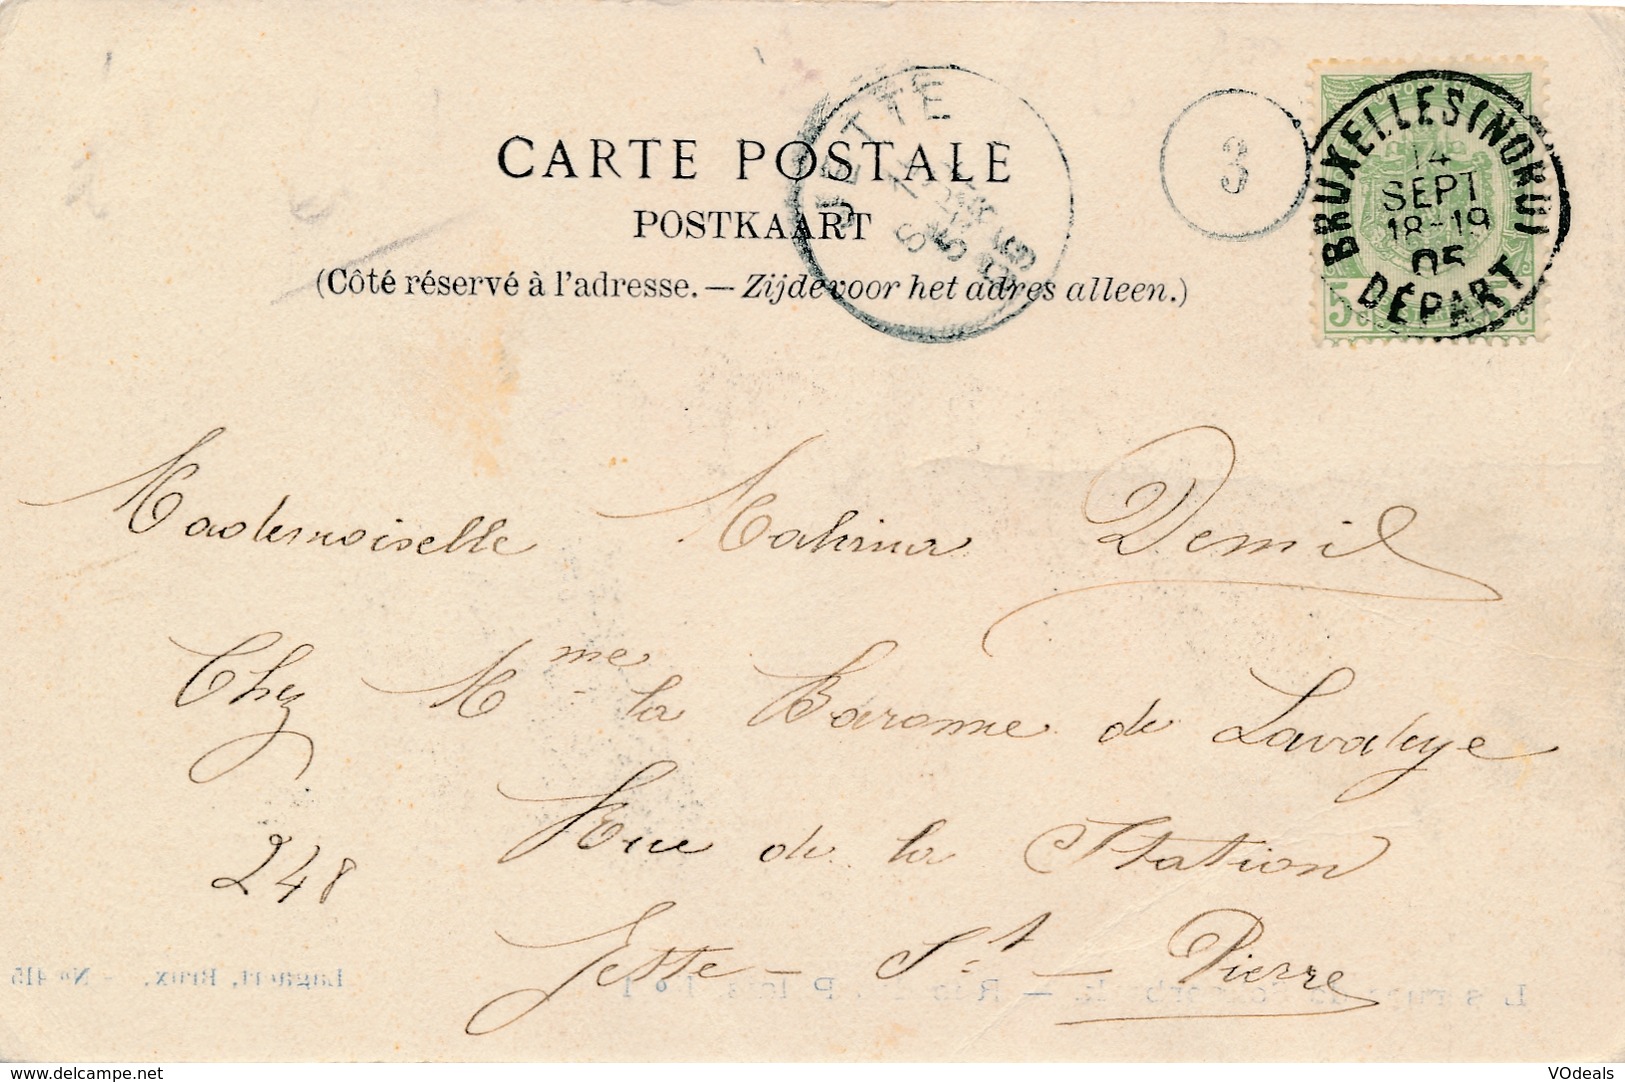 CARTE POSTALE
POSTKAART
(Côté réservé à l'adresse. — Zijde voor het adres alleen.)
JETTE
3
BRUXELLES (NORD)
14
SEPT
18-19
05
DÉPART
5
Mademoiselle Demil
Chez Mme la Baronne de Lavaleye
248 Rue de la Station
Jette - St - Pierre
Lagaert, Brux. - No 415
www.delcampe.net
VOdeals